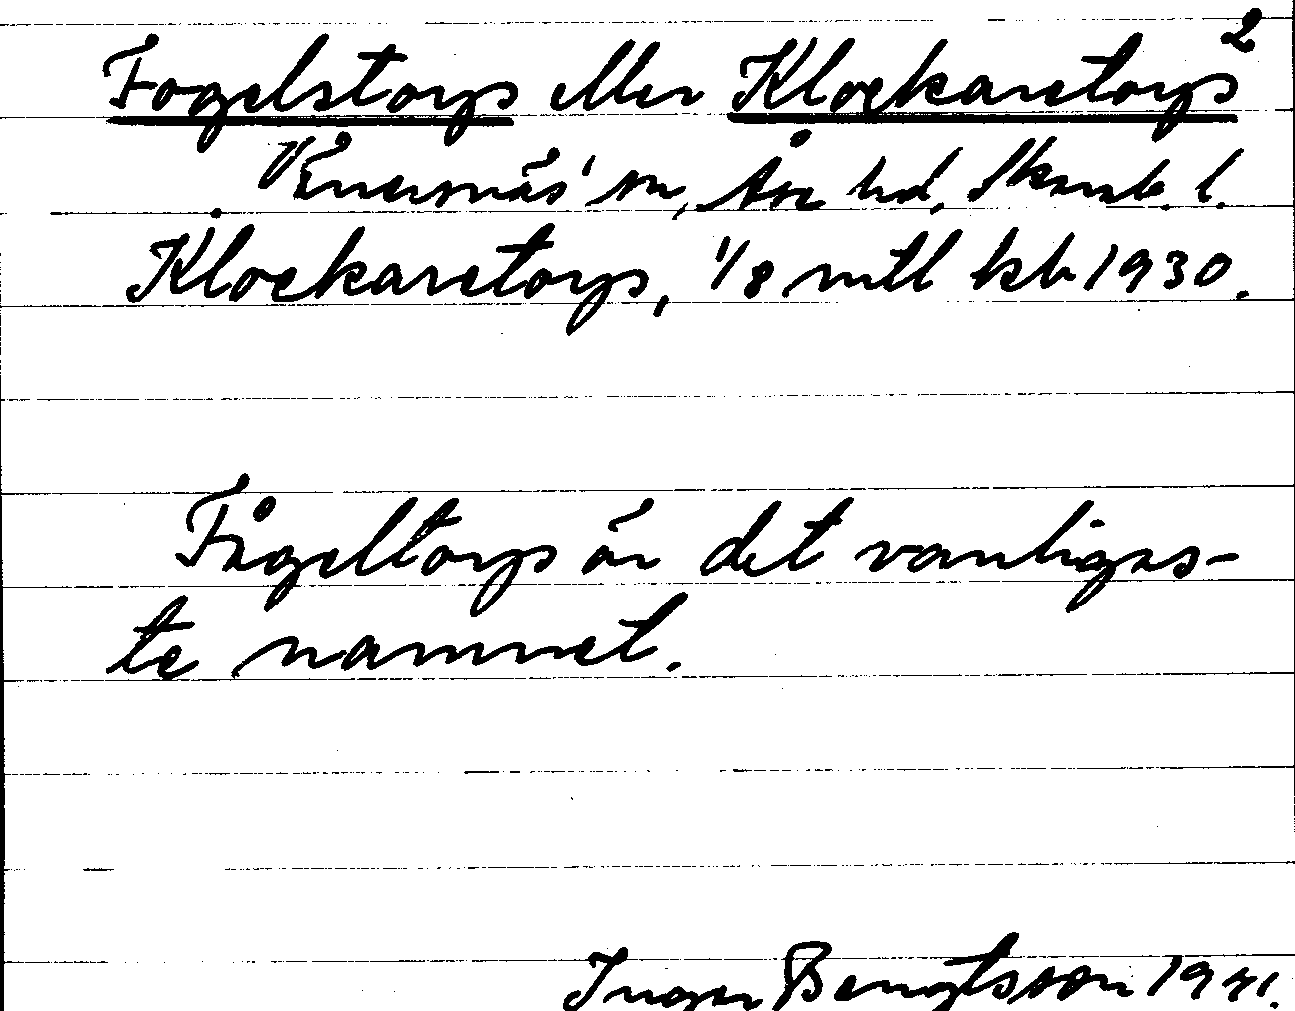 Fogelstorp eller Klockaretorp 2
Vänersnäs' sn, Åse hd, Skarab. l.
Klockaretorp, 1/8 mtl kb 1930.
Fågeltorp är det vanligas-
te namnet.
Inger Bengtsson 1941.